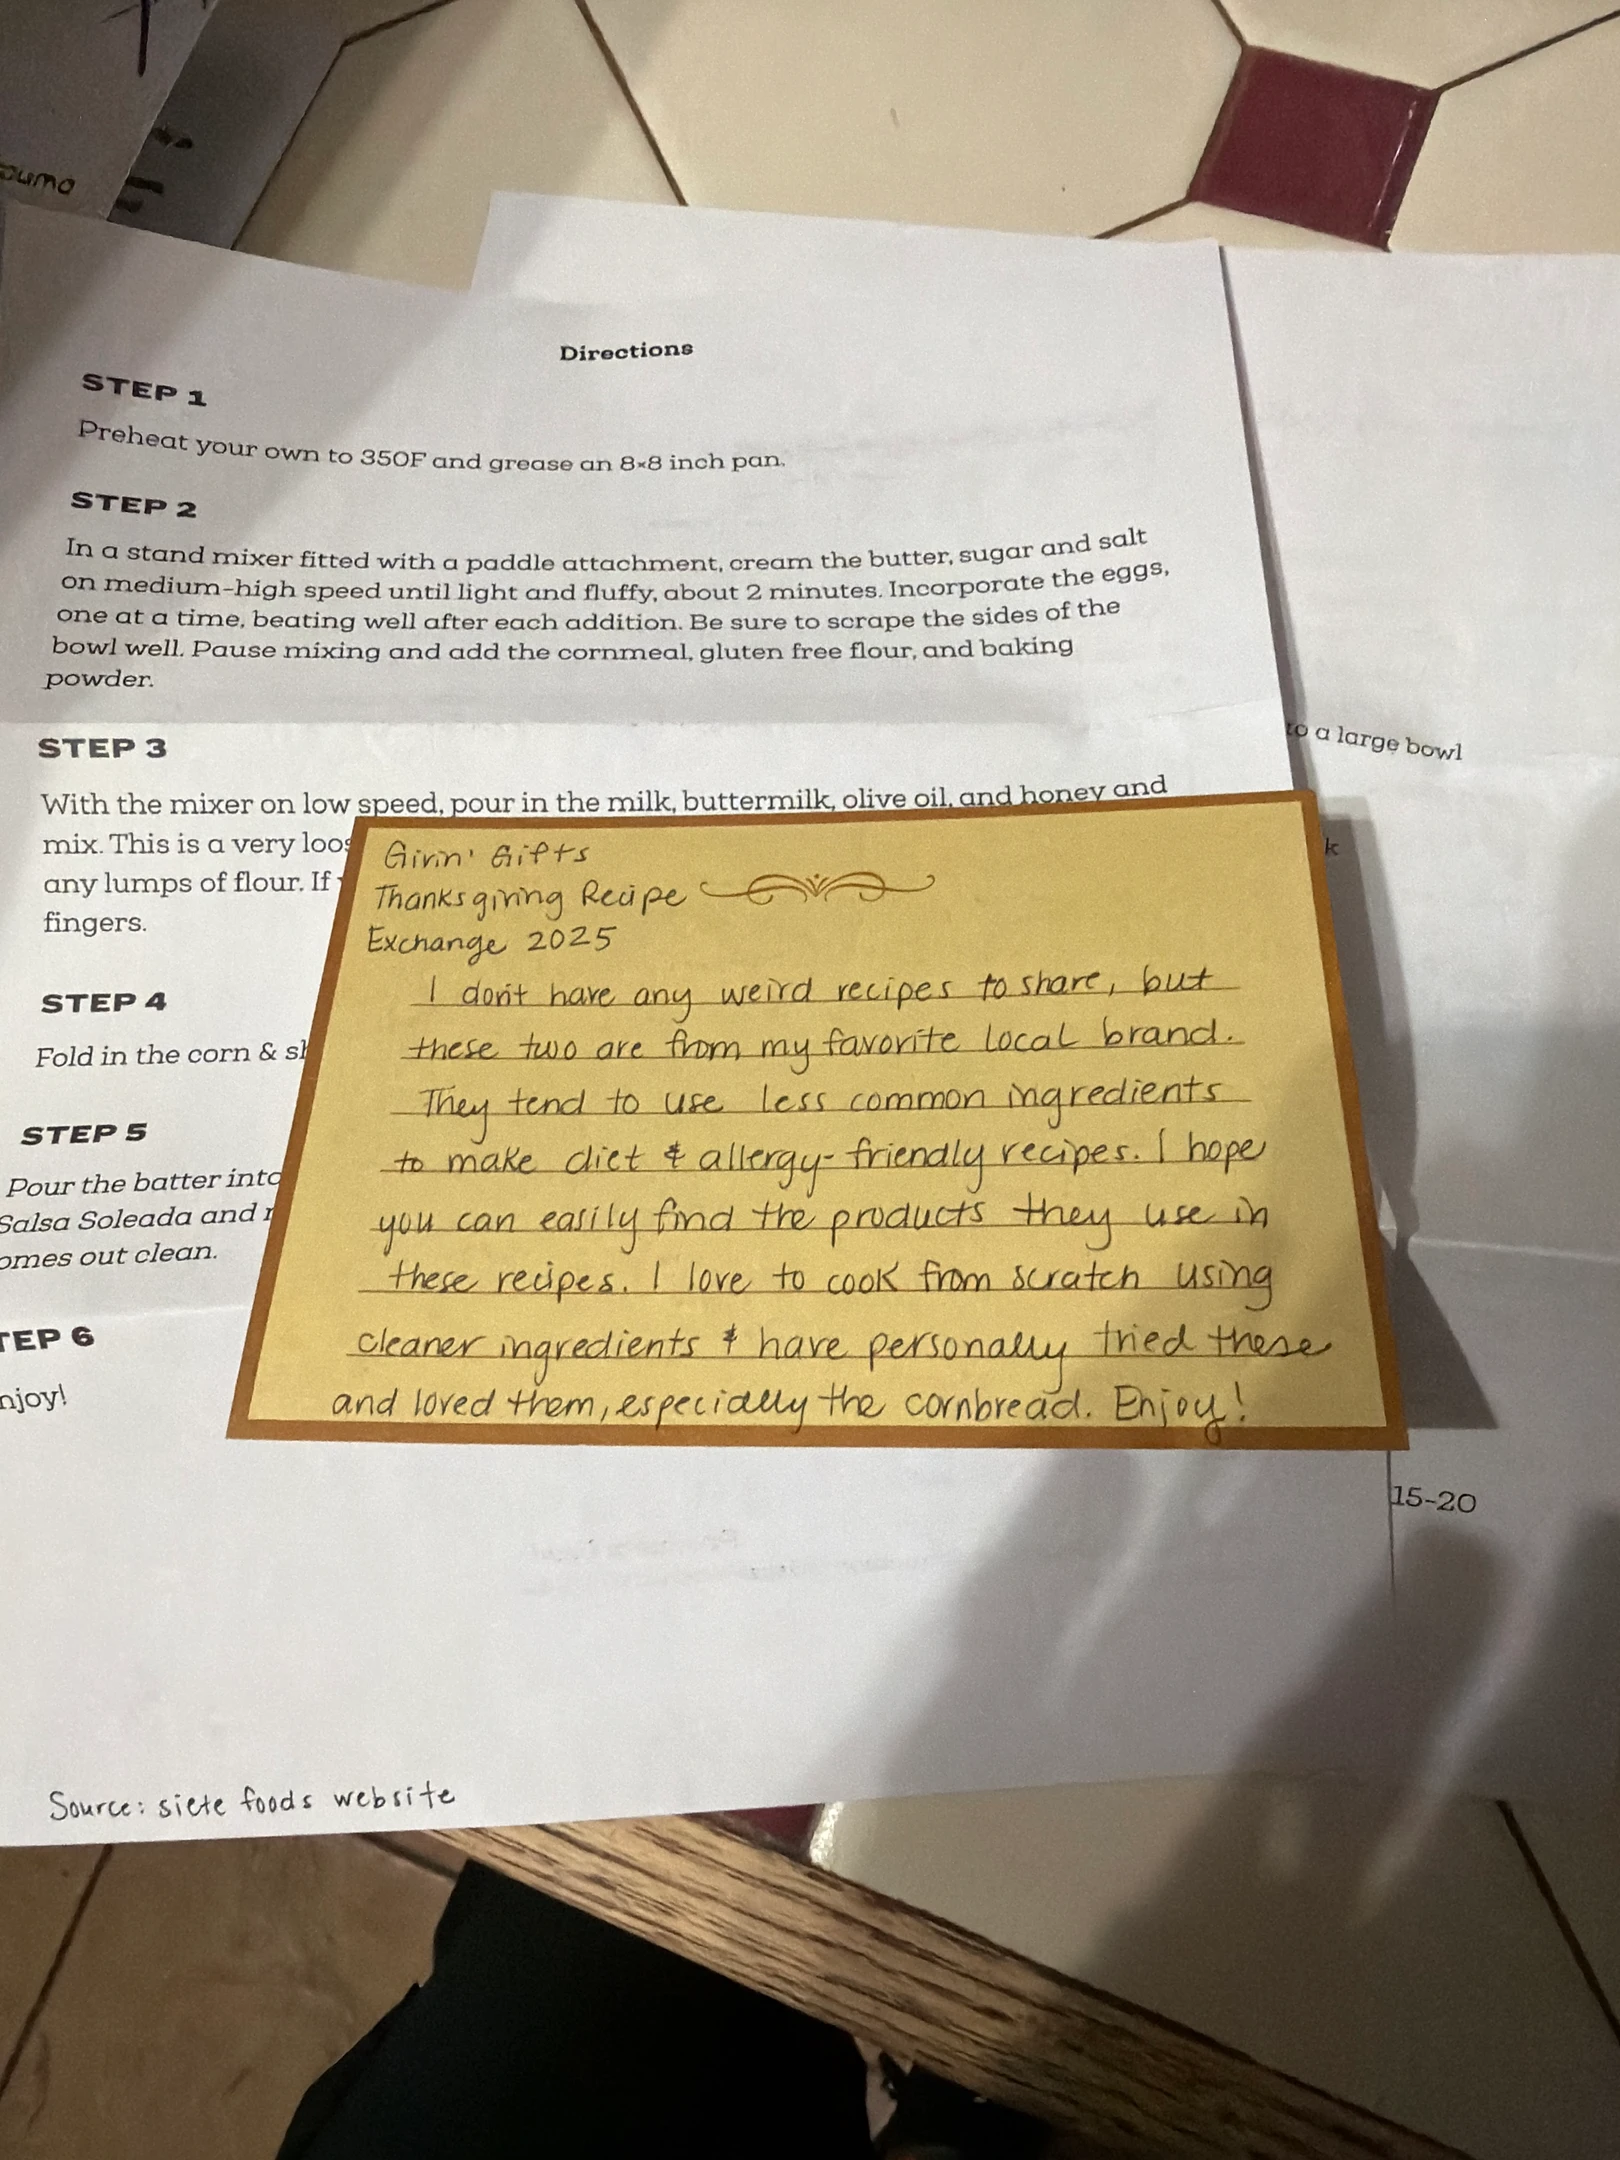 Directions
STEP 1
Preheat your own to 350F and grease an 8×8 inch pan.
STEP 2
In a stand mixer fitted with a paddle attachment, cream the butter, sugar and salt
on medium-high speed until light and fluffy, about 2 minutes. Incorporate the eggs,
one at a time, beating well after each addition. Be sure to scrape the sides of the
bowl well. Pause mixing and add the cornmeal, gluten free flour, and baking
powder.
STEP 3
With the mixer on low speed, pour in the milk, buttermilk, olive oil, and honey and
mix. This is a very
any lumps of flour. If
fingers.
STEP 4
Fold in the corn &
STEP 5
Pour the batter
Salsa Soleada and
out clean.
6
Source: siete foods website
Givin' Gifts
Thanksgiving Recipe
Exchange 2025
I don't have any weird recipes to share, but
these two are from my favorite local brand.
They tend to use less common ingredients
to make diet & allergy-friendly recipes. I hope
you can easily find the products they use in
these recipes. I love to cook from scratch using
cleaner ingredients & have personally tried these
and loved them, especially the cornbread. Enjoy!
to a large bowl
15-20